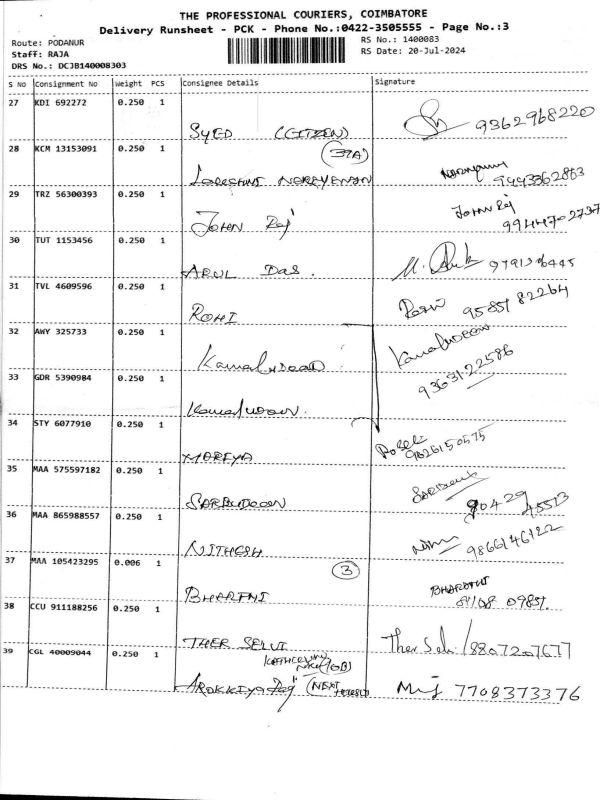 THE PROFESSIONAL COURIERS, COIMBATORE
Delivery Runsheet - PCK - Phone No.:0422-3505555 - Page No.:3
Route: PODANUR
RS No.: 1400083
Staff: RAJA
RS Date: 20-Jul-2024
DRS No.: DCJB140008303
S NO Consignment No Weight PCS Consignee Details Signature
27 KDI 692272 0.250 1
SYED (CITIZEN) 9362968220
28 KCM 13153091 0.250 1 (37A)
NAREYENAN 9443362863
29 TRZ 56300393 0.250 1
JOHN Raj JOHN Raj 9944702737
30 TUT 1153456 0.250 1
ARUL DAS.
31 TVL 4609596 0.250 1
ROHI 9585782264
32 AWY 325733 0.250 1
Kamaludeen Kamaludeen
33 GDR 5390984 0.250 1 9363122586
Kamaludeen
34 STY 6077910 0.250 1
9626150575
35 MAA 575597182 0.250 1
SARBUDEEN 90429 45513
36 MAA 865988557 0.250 1
NITHESH 9866146122
37 MAA 105423295 0.006 1 3
BHARTHI
38 CCU 911188256 0.250 1
THER SELVI Ther Selvi 8807207677
39 CGL 40009044 0.250 1
AROKKIYA Raj (NEXT 7708373376